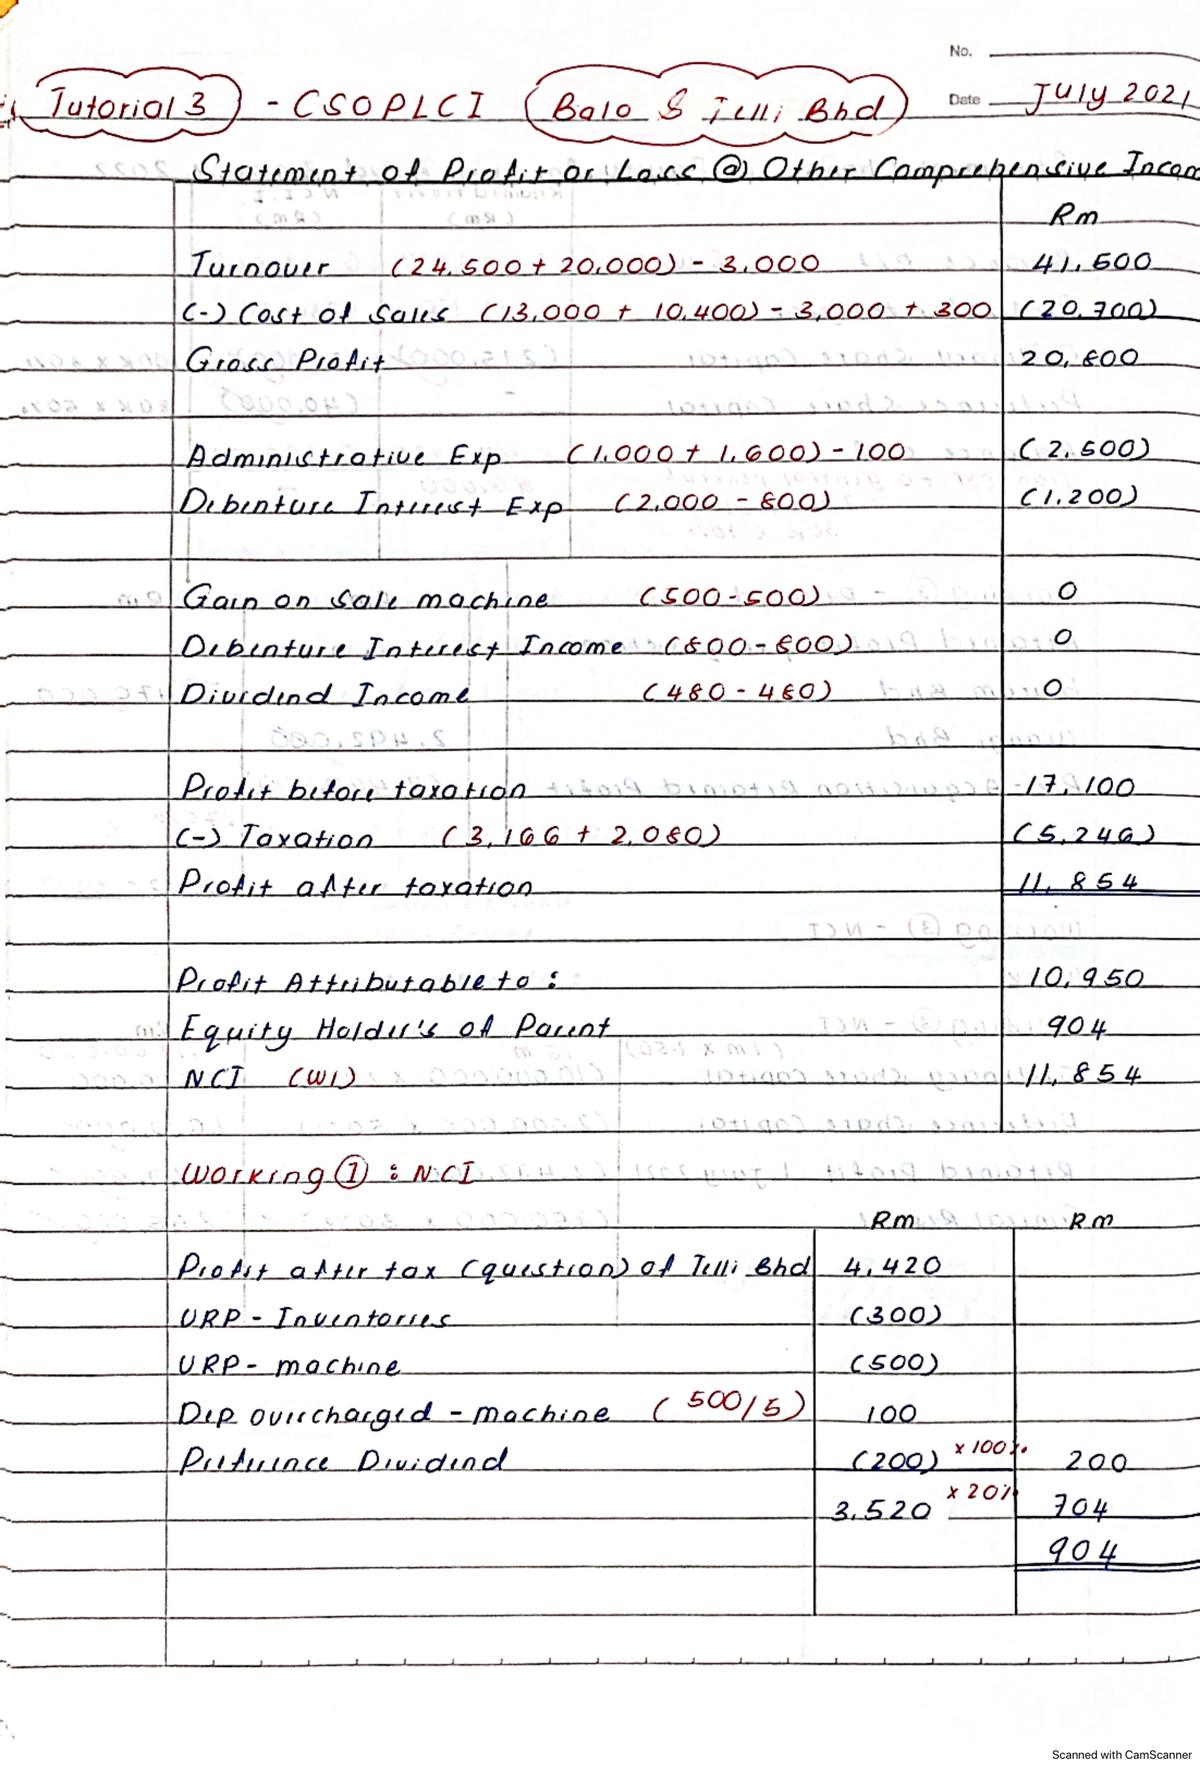 No.
Tutorial 3 - CSOPLCI Balo & Telli Bhd Date July 2021
Statement of Profit or Loss @ Other Comprehensive Incom
Rm
Turnover (24,500 + 20,000) - 3,000 41,500
(-) Cost of Sales (13,000 + 10,400) - 3,000 + 300 (20,700)
Gross Profit 20,800
Administrative Exp (1,000 + 1,600) - 100 (2,500)
Debenture Interest Exp (2,000 - 800) (1,200)
Gain on sale machine (500-500) 0
Debenture Interest Income (800-800) 0
Dividend Income (480-480) 0
Profit before taxation 17,100
(-) Taxation (3,166 + 2,080) (5,246)
Profit after taxation 11,854
Profit Attributable to : 10,950
Equity Holder's of Parent 904
NCI (W1) 11,854
Working ① : NCI
Rm Rm
Profit after tax (question) of Telli Bhd 4,420
URP - Inventories (300)
URP - machine (500)
Dep overcharged - machine (500/5) 100
Preference Dividend (200) x 100% 200
3,520 x 20% 704
904
Scanned with CamScanner